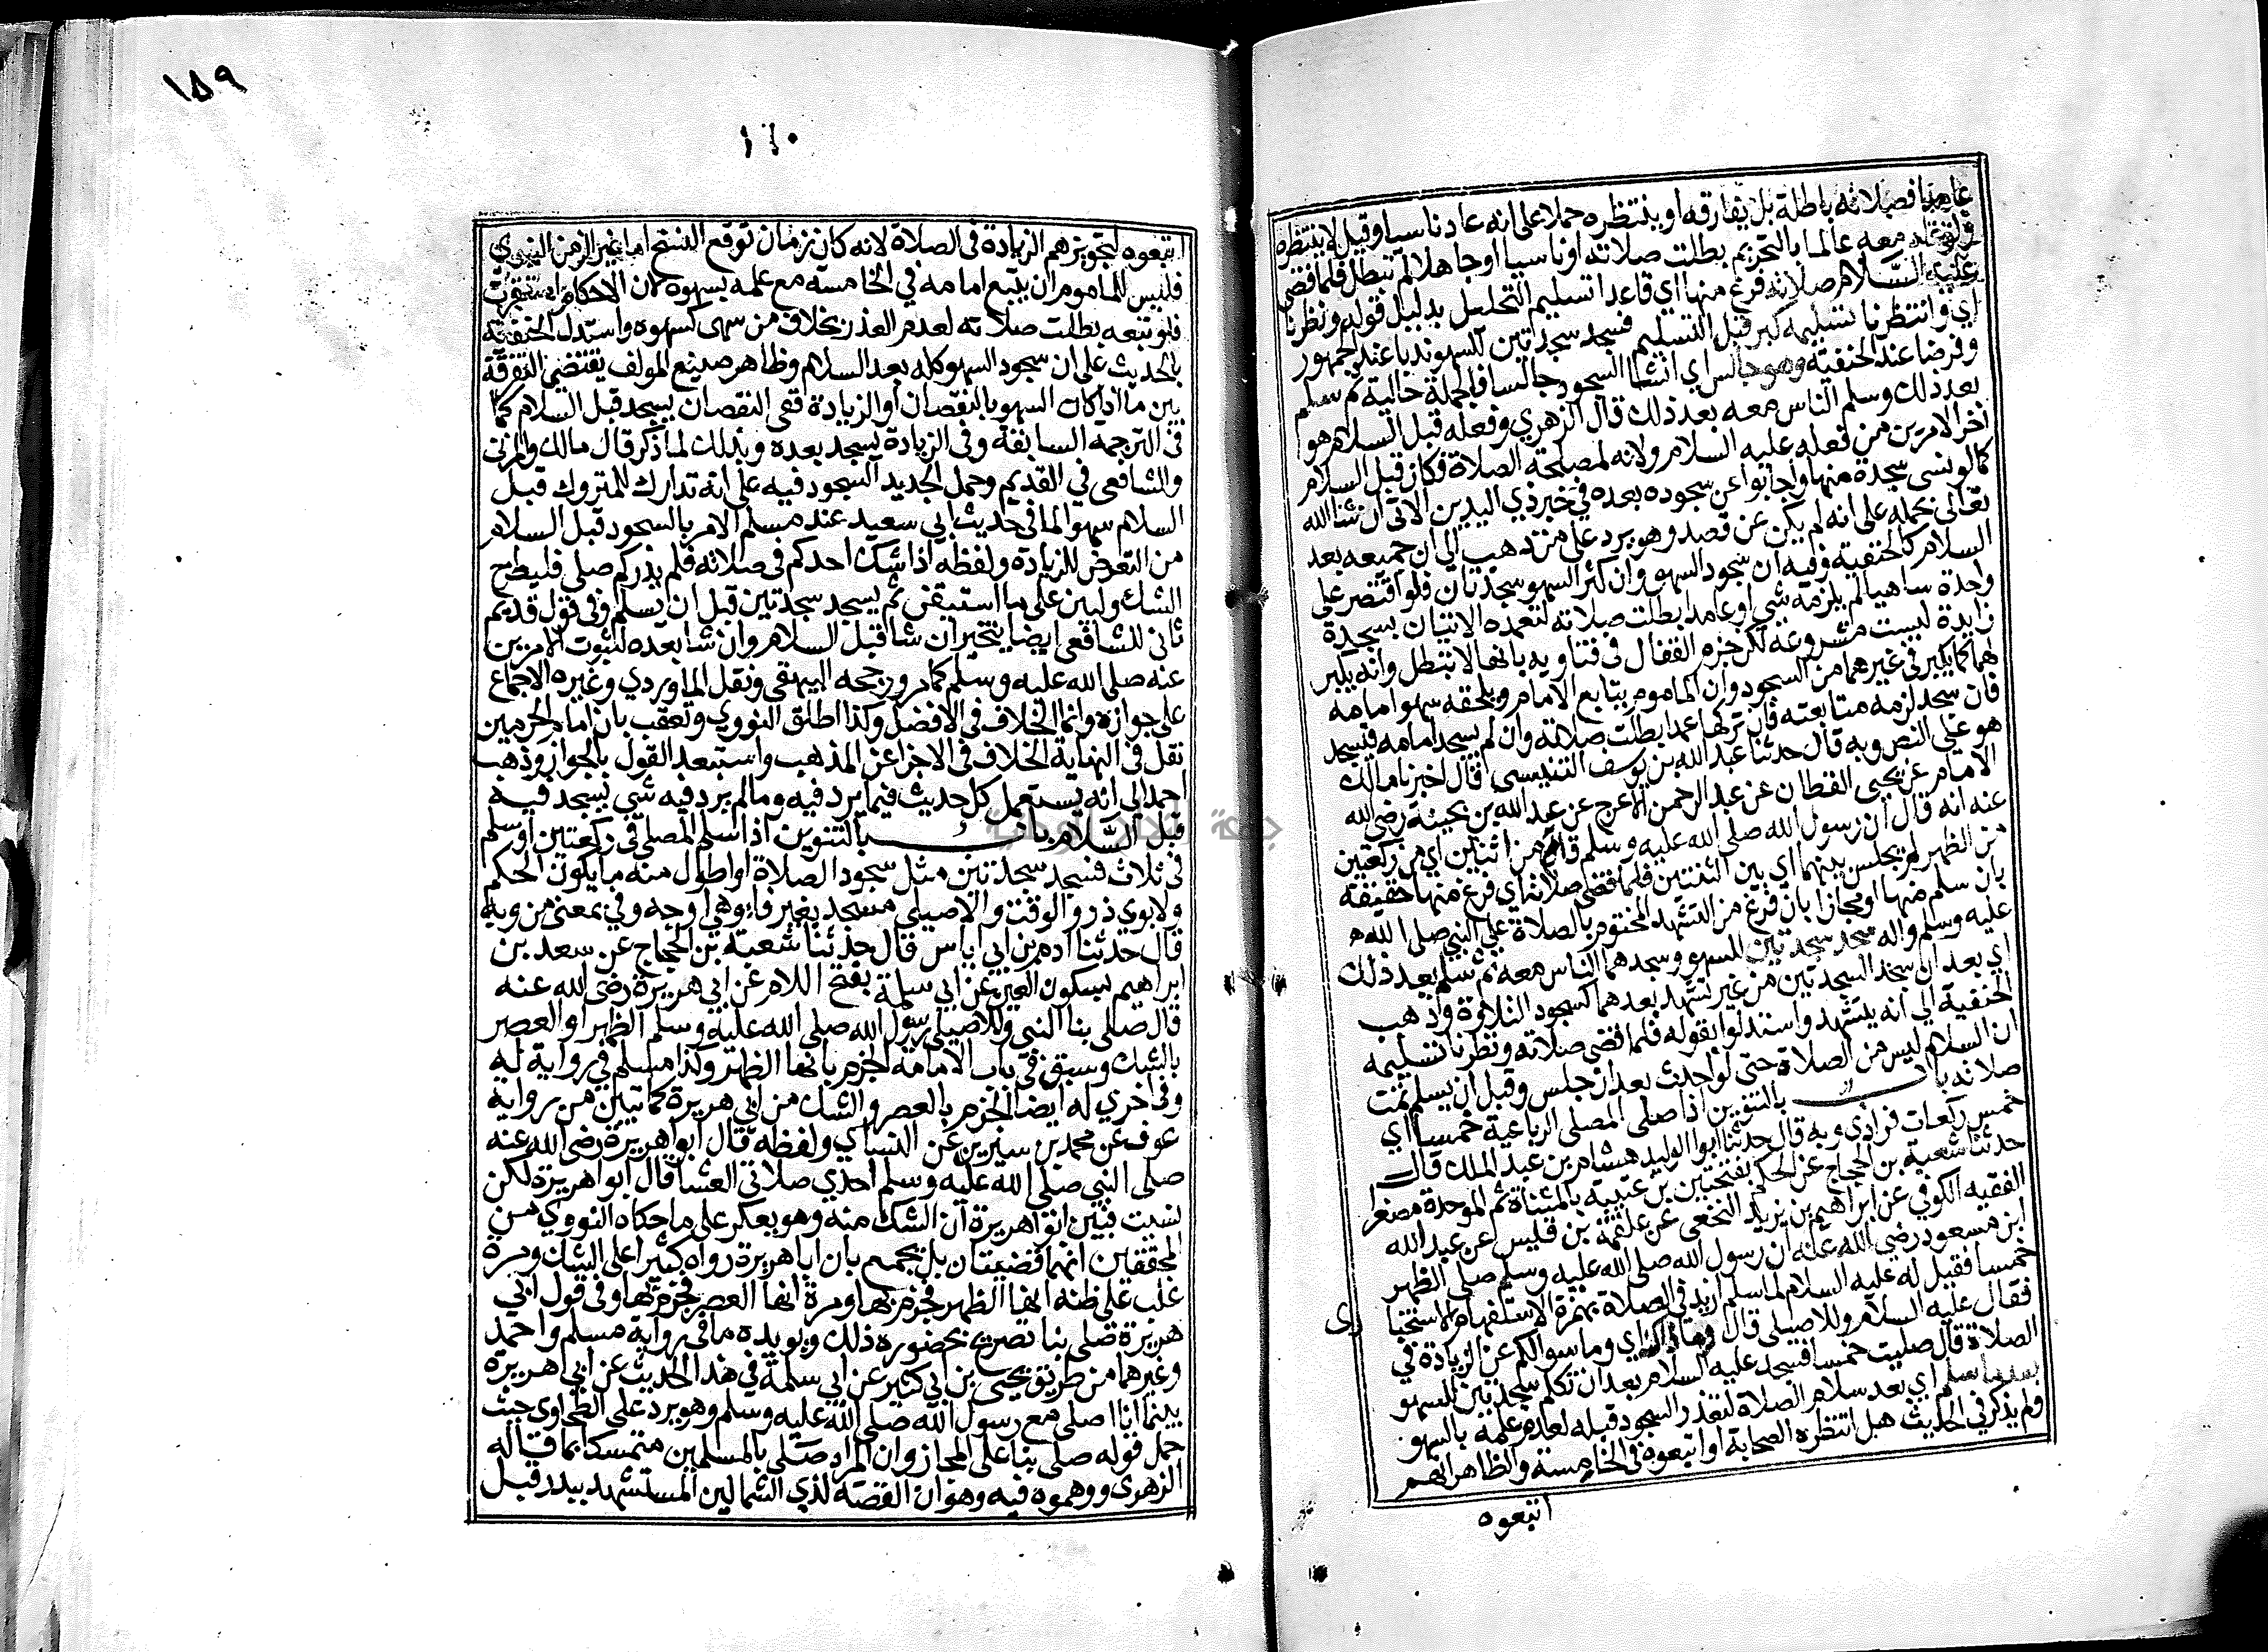 عامدا فصلاته باطلة بل يفارقه او ينتظره حملا على انه عاد ناسيا وقيل لا ينتظره
معه عالما بالتحريم بطلت صلاته او ناسيا او جاهلا لم تبطل فلما قضى
عليه السلام صلاته فرغ منها اي قاعدا تسليم التحلل بدليل قوله ونظرنا
اي وانتظرنا تسليمه كبر قبل التسليم فسجد سجدتين للسهو ندبا عند الجمهور
وفرضا عند الحنفية وهو جالس اي انشا السجود جالسا فالجملة حالية ثم سلم
بعد ذلك وسلم الناس معه بعد ذلك قال الزهري وفعله قبل السلام هو
اخر الامرين من فعله عليه السلام ولانه لمصلحة الصلاة فكان قبل السلام
كما لو نسى سجدة منها واجابوا عن سجوده بعده في خبر ذي اليدين الاتى ان شا الله
تعالى بحمله على انه لم يكن عن قصد وهو يرد على من ذهب الى ان جميعه بعد
السلام كالحنفية وفيه ان سجود السهو وان كثر السهو سجدتان فلو اقتصر على
واحدة ساهيا لم يلزمه شي او عامدا بطلت صلاته لتعمده الاتيان بسجدة
زايدة ليست مشروعة لكن جزم القفال في فتاويه بانها لا تبطل وانه يكبر
لهما كما يكبر في غيرهما من السجود وان الماموم يتابع الامام ويلحقه سهو امامه
فان سجد لزمه متابعته فان تركها عمدا بطلت صلاته وان لم يسجد امامه فيسجد
هو على النص وبه قال حدثنا عبد الله بن يوسف التنيسى قال اخبرنا مالك
الامام عن يحيى القطان عن عبد الرحمن الاعرج عن عبد الله بن بحينة رضى الله
عنه انه قال ان رسول الله صلى الله عليه وسلم قام من اثنين اي من ركعتين
من الظهر لم يجلس بينهما اي بين الثنتين فلما قضى صلاته اي فرغ منها حقيقة
بان سلم منها او مجازا بان فرغ من التشهد المختوم بالصلاة على النبي صلى الله
عليه وسلم واله سجد سجدتين للسهو وسجدهما الناس معه ثم سلم بعد ذلك
اي بعد ان سجد السجدتين من غير تشهد بعدهما كسجود التلاوة وذهب
الحنفية الى انه يتشهد واستدلوا بقوله فلما قضى صلاته ونظرنا تسليمه
ان السلام ليس من الصلاة حتى لو احدث بعد ان جلس وقبل ان يسلم تمت
صلاته باب بالتنوين اذا صلى المصلى الرباعية خمسا اي
خمس ركعات فزاد ى وبه قال حدثنا ابو الوليد هشام بن عبد الملك قال
حدثنا شعبة بن الحجاج عن الحكم بفتحتين بن عتيبة بالمثناة ثم الموحدة مصغرا
الفقيه الكوفي عن ابراهيم بن يزيد النخعى عن علقمة بن قيس عن عبد الله
ابن مسعود رضى الله عنه ان رسول الله صلى الله عليه وسلم صلى الظهر
خمسا فقيل له عليه السلام لما سلم ازيد في الصلاة بهمزة الاستفهام الاستخبا
ري
فقال عليه السلام وللاصيلى قال وما ذاك اي وما سوالكم عن الزيادة في
الصلاة قال صليت خمسا فسجد عليه السلام بعد ان تكلم سجدتين للسهو
بعدما سلم اي بعد سلام الصلاة لتعذر السجود قبله لعدم علمه بالسهو
ولم يذكر في الحديث هل انتظره الصحابة او اتبعوه في الخامسة والظاهر انهم
اتبعوه
١٥٩
١٤٠
اتبعوه لتجويزهم الزيادة في الصلاة لانه كان زمان توقع النسخ اما غير الزمن النبوي
فليس للماموم ان يتبع امامه في الخامسة مع علمه بسهوه لان الاحكام استقرت
فلو تبعه بطلت صلاته لعدم العذر بخلاف من سهى كسهوه واستدل الحنفية
بالحديث على ان سجود السهو كله بعد السلام وظاهر صنيع المولف يقتضي التفرقة
بين ما اذا كان السهو بالنقصان او الزيادة ففى النقصان يسجد قبل السلام كما
في الترجمة السابقة وفي الزيادة يسجد بعده وبذلك لما ذكر قال مالك والمزنى
والشافعى في القديم وحمل الجديد السجود فيه على انه تدارك للمتروك قبل
السلام سهوا لما في حديث ابي سعيد عند مسلم الامر بالسجود قبل السلام
من التعرض للزيادة ولفظه اذا شك احدكم في صلاته فلم يدر كم صلى فليطرح
الشك وليبن على ما استيقن ثم يسجد سجدتين قبل ان يسلم وفي قول قديم
ثانى للشافعى ايضا يتخير ان شا قبل السلام وان شا بعده لثبوت الامرين
عنه صلى الله عليه وسلم كما مر ورجحه البيهقى ونقل الماوردي وغيره الاجماع
على جوازه وانما الخلاف في الافضل وكذا اطلق النووي وتعقب بان امام الحرمين
نقل في النهاية الخلاف في الاجزا عن المذهب واستبعد القول بالجواز وذهب
احمد الى انه يستعمل كل حديث فيما يرد فيه وما لم يرد فيه شي يسجد فيه
قبل السلام باب بالتنوين اذا سلم المصلى في ركعتين او سلم
في ثلاث فسجد سجدتين مثل سجود الصلاة او اطول منه ما يكون الحكم
ولابوي ذر والوقت والاصيلي مسجد بغير فا وهي اوجه وفي بمعنى من وبه
قال حدثنا ادم بن ابي اياس قال حدثنا شعبة بن الحجاج عن سعد بن
ابراهيم بسكون العين عن ابي سلمة بفتح اللام عن ابي هريرة رضى الله عنه
قال صلى بنا النبي وللاصيلي رسول الله صلى الله عليه وسلم الظهر او العصر
بالشك وسبق في باب الامامة الجزم بانها الظهر وكذا مسلم في رواية له
وفي اخري له ايضا الجزم بالعصر والشك من ابي هريرة كما تبين من رواية
عوف عن محمد بن سيرين عن النساي ولفظه قال ابو هريرة رضى الله عنه
صلى النبي صلى الله عليه وسلم احدي صلاتى العشا قال ابو هريرة لكن
نسيت فبين ابو هريرة ان الشك منه وهو يعكر على ما حكاه النووي من
المحققين انهما قضيتان بل يجمع بان ابا هريرة رواه كثيرا على الشك ومرة
غلب على ظنه انها الظهر فجزم بها ومرة انها العصر فجزم بها وفي قول ابي
هريرة صلى بنا تصريح بحضوره ذلك ويويده ما في رواية مسلم واحمد
وغيرهما من طريق يحيى بن ابي كثير عن ابي سلمة في هذا الحديث عن ابي هريرة
بينما انا اصلى مع رسول الله صلى الله عليه وسلم وهو يرد على الطحاوي حيث
حمل قوله صلى بنا على المجاز وان المراد صلى بالمسلمين متمسكا بما قاله
الزهرى ووهموه فيه وهو ان القصة لذي الشمالين المستشهد ببدر قبل